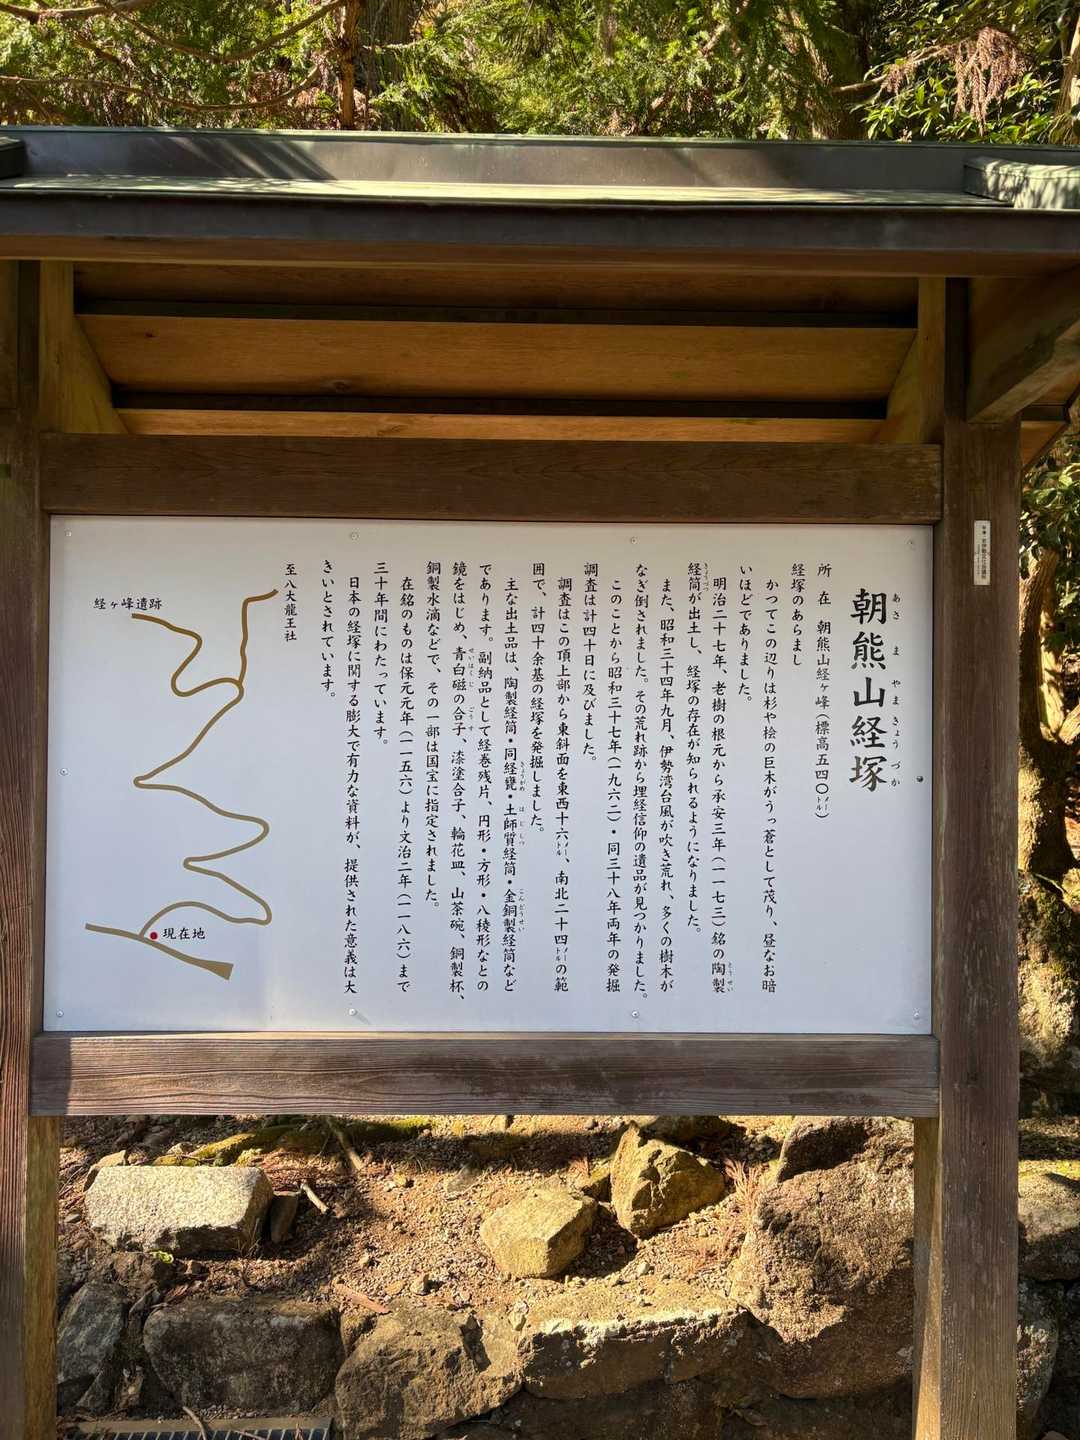 朝熊山経塚
あさ ま やま きょう づか
所 在 朝熊山経ヶ峰(標高五四〇メートル)
経塚のあらまし
かつてこの辺りは杉や桧の巨木がうっ蒼として茂り、昼なお暗
いほどでありました。
明治二十七年、老樹の根元から承安三年(一一七三)銘の陶製
とうせい
経筒が出土し、経塚の存在が知られるようになりました。
きょうづつ
また、昭和三十四年九月、伊勢湾台風が吹き荒れ、多くの樹木が
なぎ倒されました。その荒れ跡から埋経信仰の遺品が見つかりました。
このことから昭和三十七年(一九六二)・同三十八年両年の発掘
調査は計四十日に及びました。
調査はこの頂上部から東斜面を東西十六メートル、南北二十四メートルの範
囲で、計四十余基の経塚を発掘しました。
主な出土品は、陶製経筒・同経甕・土師質経筒・金銅製経筒など
きょうがめ はじしつ こんどうせい
であります。副納品として経巻残片、円形・方形・八稜形などの
鏡をはじめ、青白磁の合子、漆塗合子、輪花皿、山茶碗、銅製杯、
せいはくじ ごうす
銅製水滴などで、その一部は国宝に指定されました。
在銘のものは保元元年(一一五六)より文治二年(一一八六)まで
三十年間にわたっています。
日本の経塚に関する膨大で有力な資料が、提供された意義は大
きいとされています。
至八大龍王社
経ヶ峰遺跡
現在地